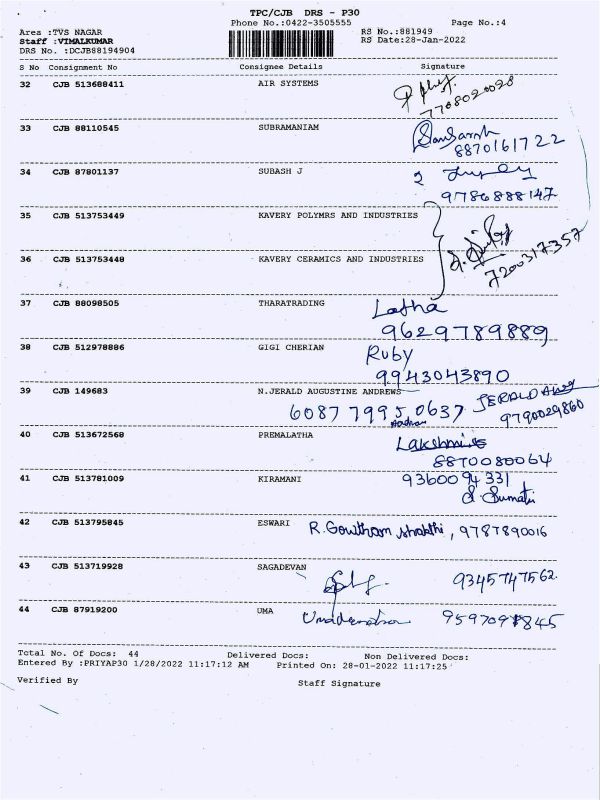 TPC/CJB DRS - P30
Phone No.:0422-3505555 Page No.:4
Area :TVS NAGAR RS No.:881949
Staff :VIMALKUMAR RS Date:28-Jan-2022
DRS No. :DCJB88194904
S No Consignment No Consignee Details Signature
32 CJB 513688411 AIR SYSTEMS
7708020028
33 CJB 88110545 SUBRAMANIAM
8870161722
34 CJB 87801137 SUBASH J
9786888147
35 CJB 513753449 KAVERY POLYMRS AND INDUSTRIES
36 CJB 513753448 KAVERY CERAMICS AND INDUSTRIES
7200317357
37 CJB 88098505 THARATRADING Latha
9629789889
38 CJB 512978886 GIGI CHERIAN Ruby
9943043890
39 CJB 149683 N.JERALD AUGUSTINE ANDREWS
6087 7995 0637 JERALD
Aadhaar 9790029860
40 CJB 513672568 PREMALATHA Lakshmi
8870080064
41 CJB 513781009 KIRAMANI 9360094331
S. Sumathi
42 CJB 513795845 ESWARI R. Gowtham shakthi, 9787890016
43 CJB 513719928 SAGADEVAN 9345747562.
44 CJB 87919200 UMA
Total No. Of Docs: 44 Delivered Docs: Non Delivered Docs:
Entered By :PRIYAP30 1/28/2022 11:17:12 AM Printed On: 28-01-2022 11:17:25
Verified By Staff Signature